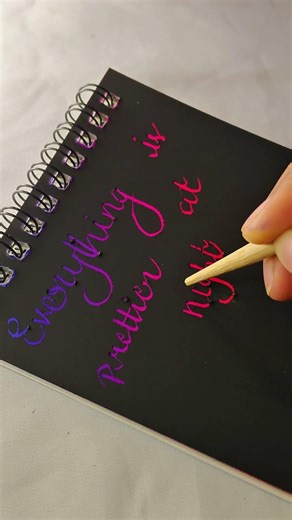 Everything is
Prettier at
night